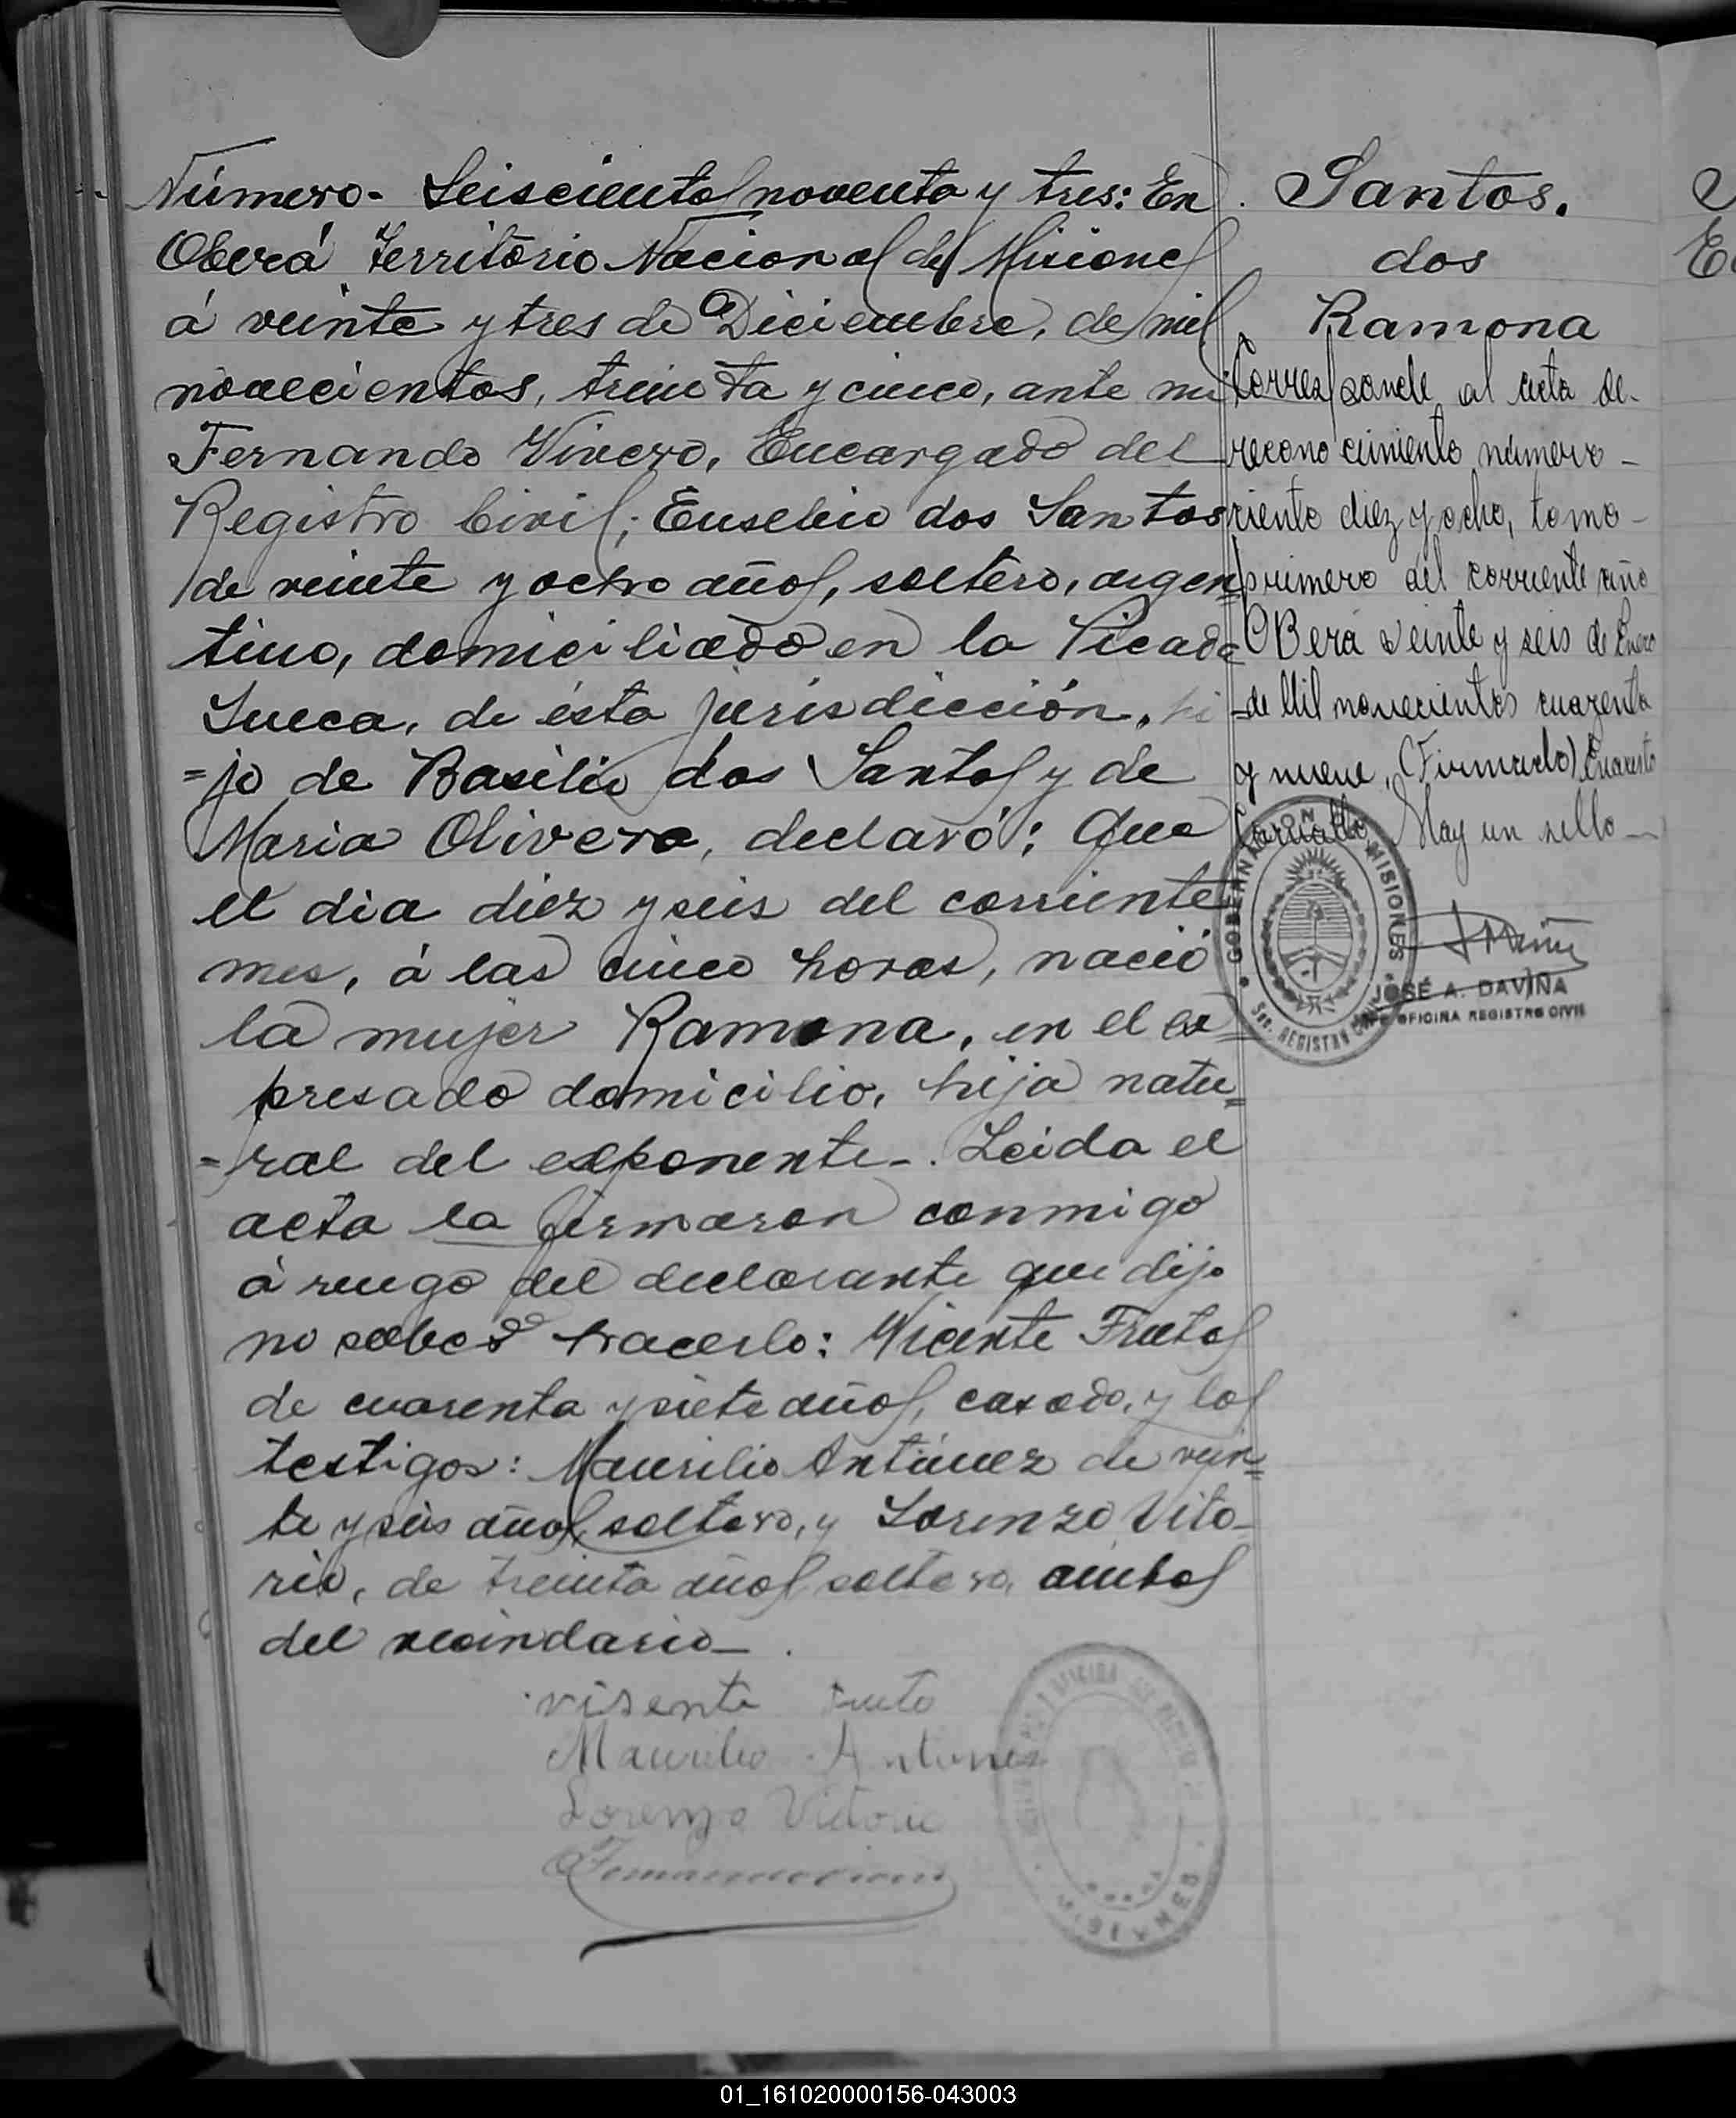 Número- Seiscientos noventa y tres: En
Oberá Territorio Nacional de Misiones
á veinte y tres de Diciembre, de mil
novecientos, treinta y cinco, ante mi
Fernando Vivero, Encargado del
Registro Civil; Eusebio dos Santos
de veinte y ocho años, soltero, argen=
tino, domiciliado en la Picada
Sueca, de ésta jurisdicción, hi
=jo de Basilio dos Santos y de
Maria Olivera, declaró; Que
el dia diez y seis del corriente
mes, á las cinco horas, nació
la mujer Ramona, en el ex
presado domicilio, hija natu=
=ral del exponente-. Leida el
acta la firmaron conmigo
á ruego del declarante que dijo
no saber hacerlo: Vicente Frutos
de cuarenta y siete años, casado, y los
testigos: Maurilio Antúnez de vein=
te y seis años, soltero, y Lorenzo Vito-
rio, de treinta años soltero, ambos
del vecindario-.
visente Fruto
Maurilio Antunez
Lorenzo Vitorio
Santos.
dos
Ramona
Corresponde al acta de-
reconocimiento número-
ciento diez y ocho, tomo-
primero del corriente año
OBerá veinte y seis de Enero
-de Mil novecientos cuarenta
y nueve, (Firmado) Evaristo
Carvallo. Hay un sello-
GOBERNACION MISIONES
Sec. REGISTRO CIVIL
JOSÉ A. DAVIÑA
JEFE OFICINA REGISTRO CIVIL
MISIONES
E
01_161020000156-043003